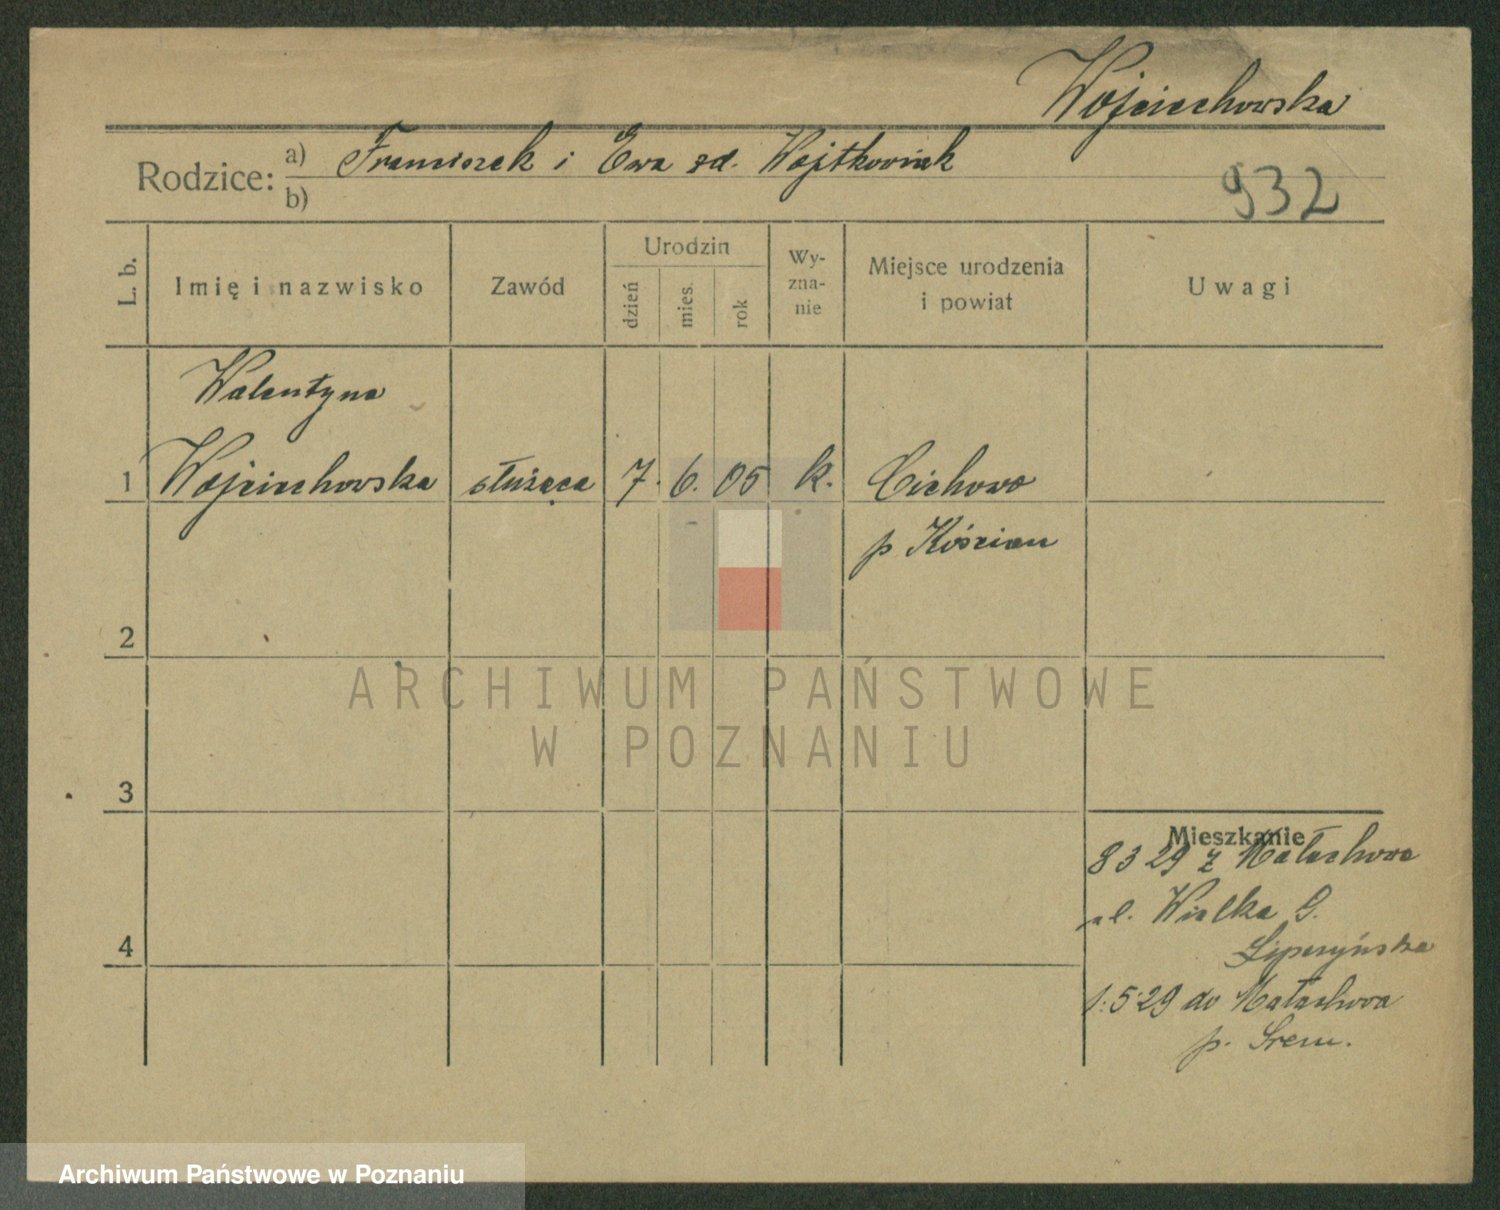 Wojciechowska
Rodzice: a) Franciszek i Ewa zd. Wojtkowiak
b)
932
L. b.
Imię i nazwisko
Zawód
Urodzin
dzień
mies.
rok
Wy-
zna-
nie
Miejsce urodzenia
i powiat
Uwagi
Walentyna
1 Wojciechowska służąca 7. 6. 05 k. Cichowo
p Kościan
2
3
4
Mieszkanie
8 3 29 z Małachowa
ul. Wielka 9.
1.5.29 do Małachowa
p. Śrem.
ARCHIWUM PAŃSTWOWE
W POZNANIU
Archiwum Państwowe w Poznaniu